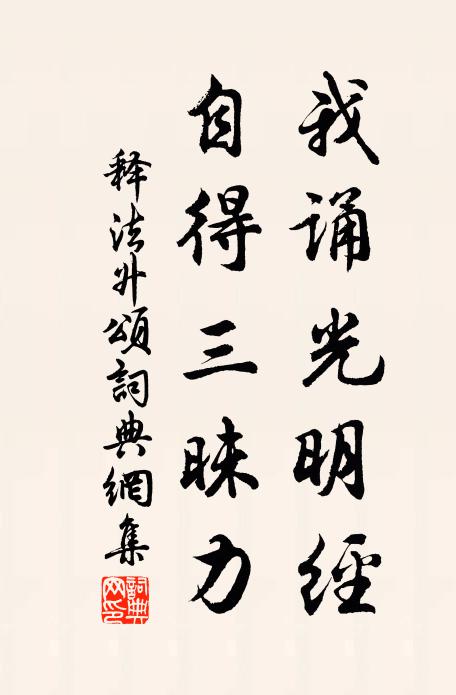 我诵光明經
自得三昧力
释法升頌詞典網集
詞典网印